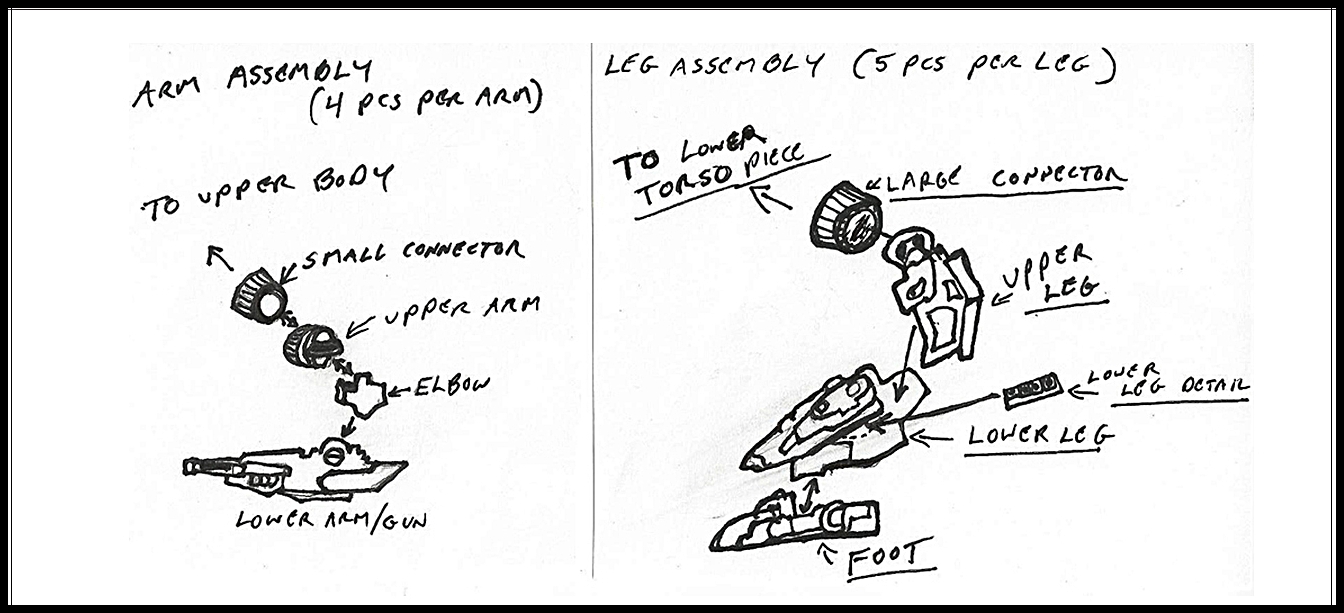 ARM ASSEMBLY
(4 PCS PER ARM)
TO UPPER BODY
SMALL CONNECTOR
UPPER ARM
ELBOW
LOWER ARM/GUN
LEG ASSEMBLY (5 PCS PER LEG)
TO LOWER
TORSO PIECE
LARGE CONNECTOR
UPPER
LEG
LOWER
LEG DETAIL
LOWER LEG
FOOT